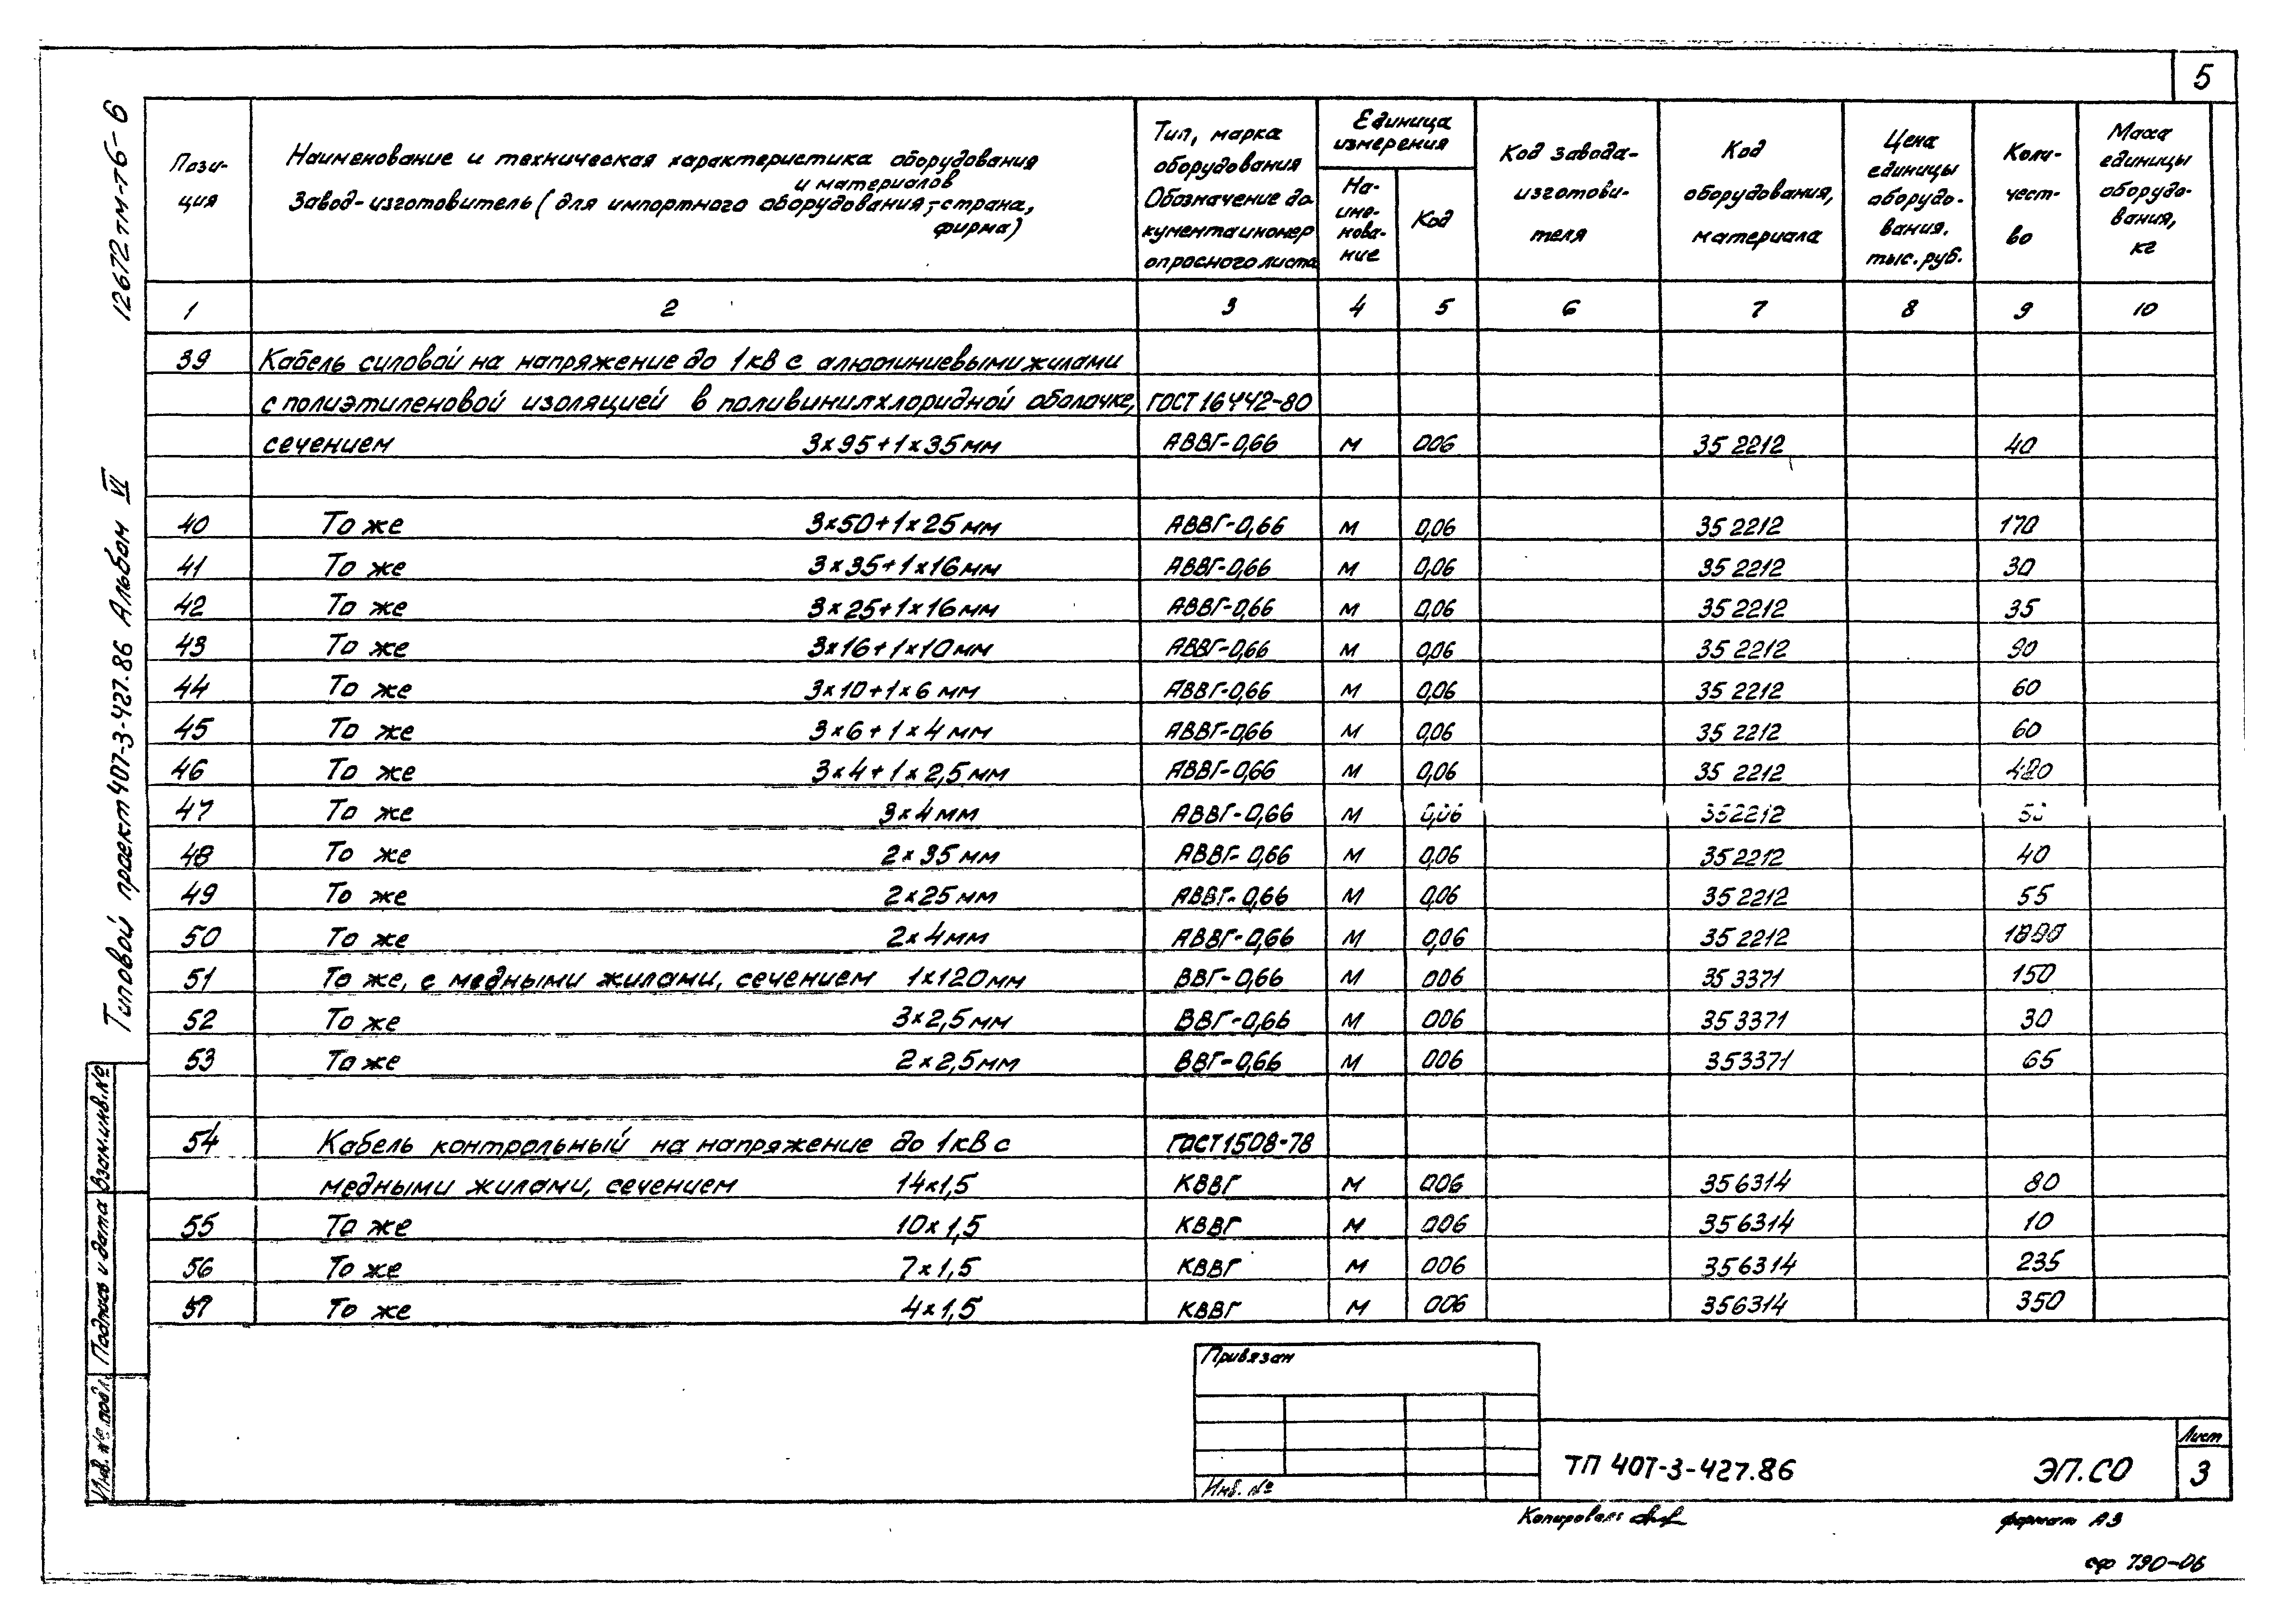 5
12672тм-т6-6
Типовой проект 407-3-427.86 Альбом VI
Пози-
ция
Наименование и техническая характеристика оборудования
и материалов
Завод-изготовитель (для импортного оборудования,-страна,
фирма)
Тип, марка
оборудования
Обозначение до
кумента и номер
опросного листа
Единица
измерения
На-
име-
нова-
ние
Код
Код завода-
изготови-
теля
Код
оборудования,
материала
Цена
единицы
оборудо-
вания.
тыс. руб.
Коли-
чест-
во
Масса
единицы
оборудо-
вания,
кг
1 2 3 4 5 6 7 8 9 10
39 Кабель силовой на напряжение до 1кВ с алюминиевыми жилами
с полиэтиленовой изоляцией в поливинилхлоридной оболочке, ГОСТ 16442-80
сечением 3×95+1×35мм АВВГ-0,66 м 006 35 2212 40
40 То же 3×50+1×25мм АВВГ-0,66 м 0,06 35 2212 170
41 То же 3×35+1×16мм АВВГ-0,66 м 0,06 35 2212 30
42 То же 3×25+1×16мм АВВГ-0,66 м 0,06 35 2212 35
43 То же 3×16+1×10мм АВВГ-0,66 м 0,06 35 2212 90
44 То же 3×10+1×6мм АВВГ-0,66 м 0,06 35 2212 60
45 То же 3×6+1×4мм АВВГ-0,66 м 0,06 35 2212 60
46 То же 3×4+1×2,5мм АВВГ-0,66 м 0,06 35 2212
47 То же 3×4мм АВВГ-0,66 м 0,06 352212
48 То же 2×35мм АВВГ-0,66 м 0,06 352212 40
49 То же 2×25мм АВВГ-0,66 м 0,06 352212 55
50 То же 2×4мм АВВГ-0,66 м 0,06 352212
51 То же, с медными жилами, сечением 1×120мм ВВГ-0,66 м 006 353371 150
52 То же 3×2,5мм ВВГ-0,66 м 006 353371 30
53 То же 2×2,5мм ВВГ-0,66 м 006 353371 65
54 Кабель контрольный на напряжение до 1кВ с ГОСТ1508-78
медными жилами, сечением 14×1,5 КВВГ м 006 356314 80
55 То же 10×1,5 КВВГ м 006 356314 10
56 То же 7×1,5 КВВГ м 006 356314 235
57 То же 4×1,5 КВВГ м 006 356314 350
Взам.инв.№
Подпись и дата
Инв. № подл.
Привязан
Инв. №
ТП 407-3-427.86 ЭП.СО
Лист
3
Копировал
формат А3
сф 790-06